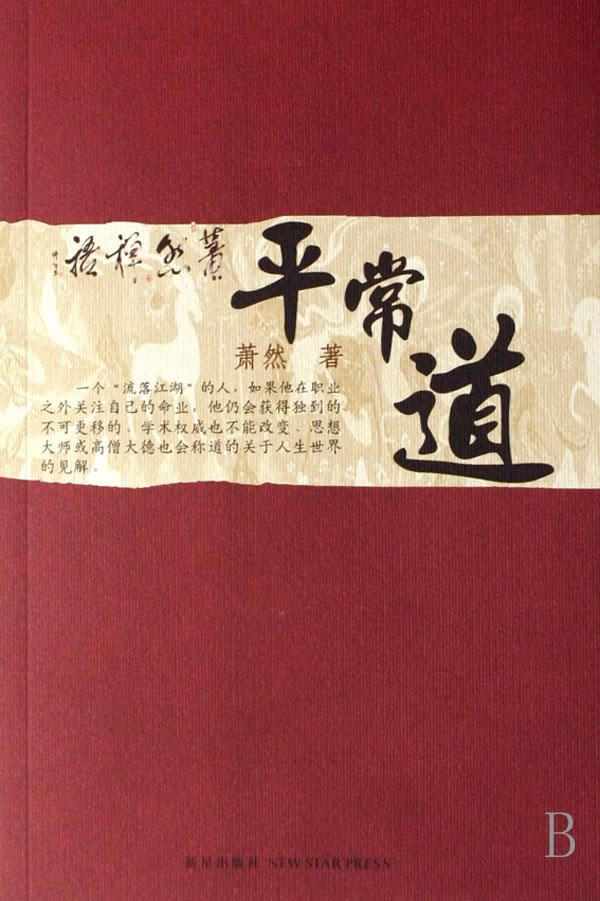 萧然禅语
平常道
萧然 著
一个“流落江湖”的人，如果他在职业
之外关注自己的命业，他仍会获得独到的、
不可更移的、学术权威也不能改变、思想
大师或高僧大德也会称道的关于人生世界
的见解。
新星出版社 NEW STAR PRESS
B